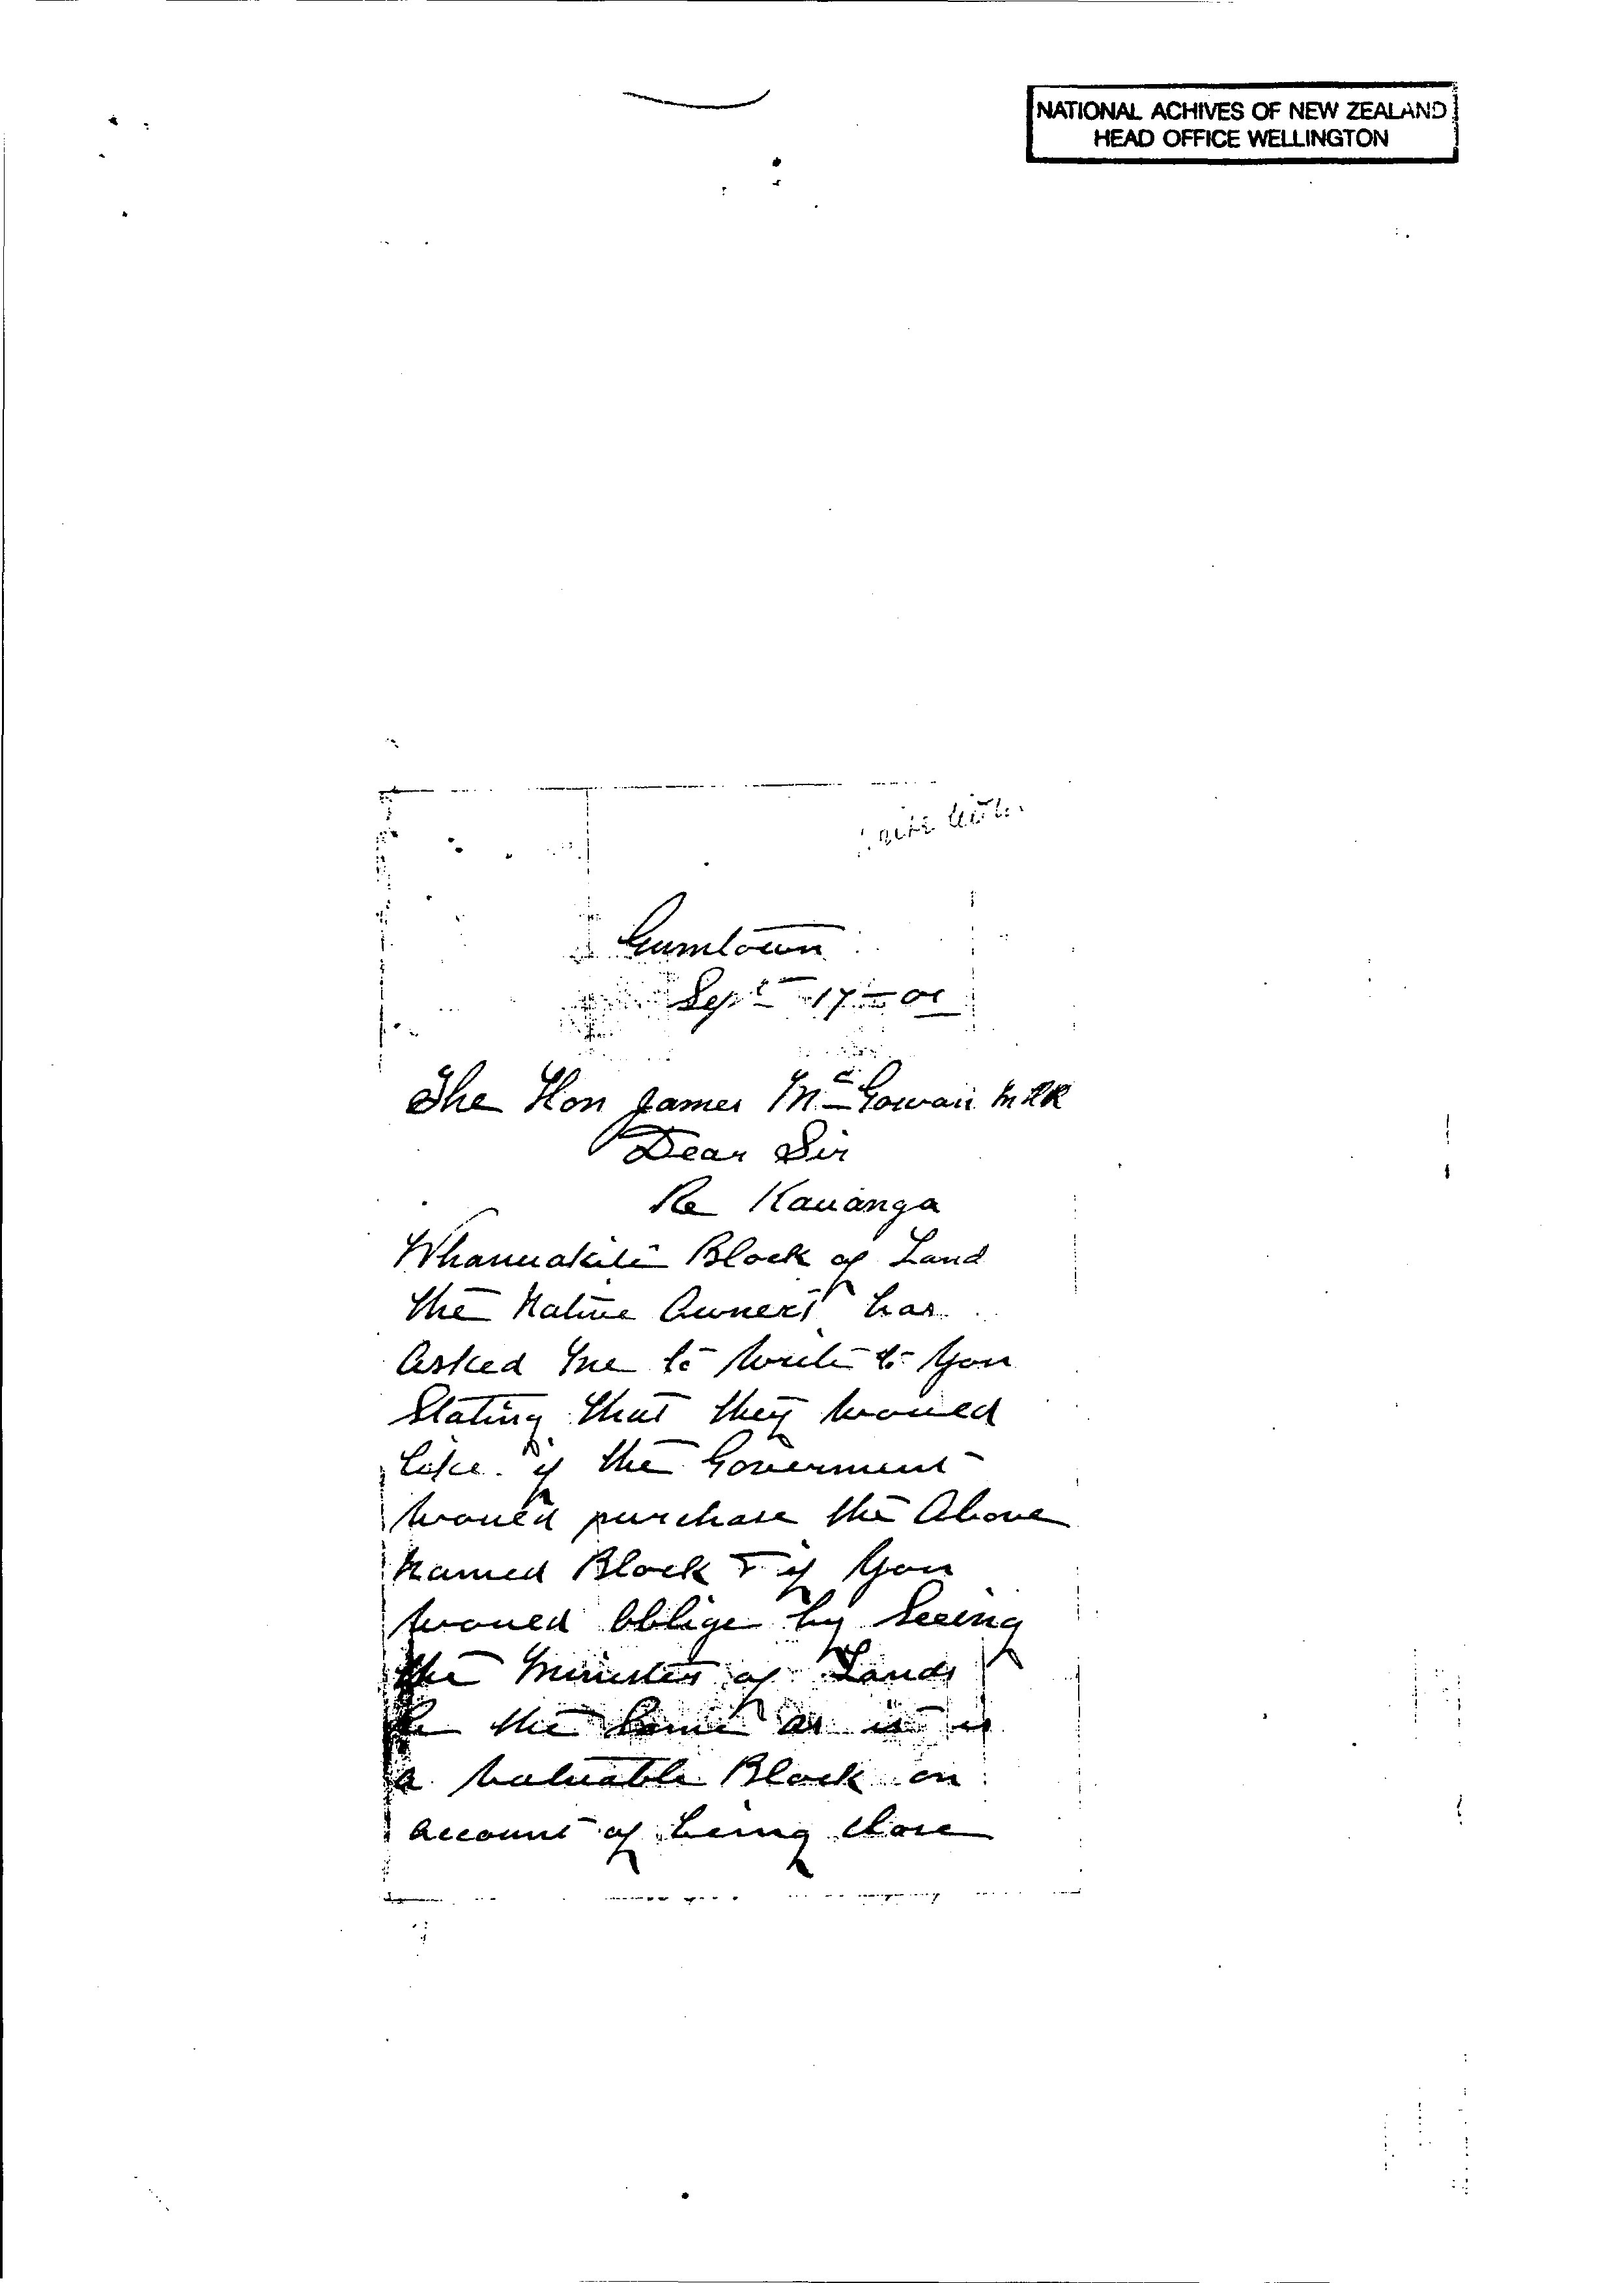 NATIONAL ACHIVES OF NEW ZEALAND
HEAD OFFICE WELLINGTON
Gumtown
Sept 17 – 01
The Hon James McGowan MHR
Dear Sir
Re Kauanga
Whanuakite Block of Land
the Native Owners has
Asked me to write to you
Stating that they would
like if the Goverment
would purchase the Above
Named Block & if you
would oblige by Seeing
the Minister of Lands
Re the Same as it is
a Valuable Block on
account of being close